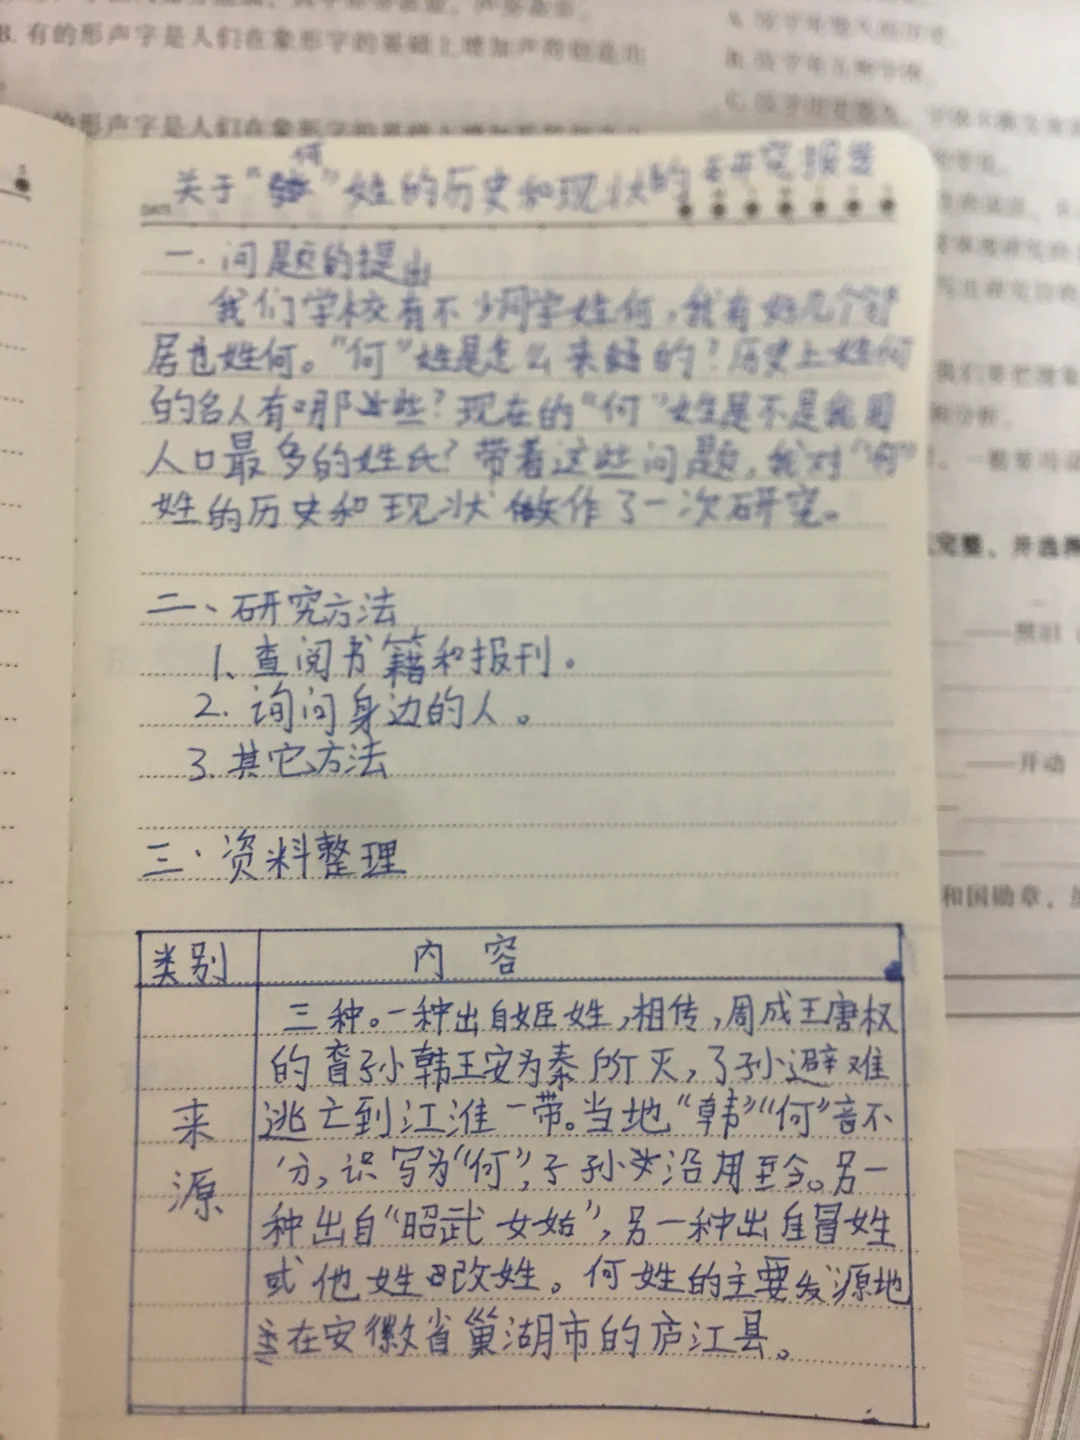 B.有的形声字是人们在象形字的基础上增加声符创造出
的形声字是人们在象形字的基础上增加
关于“何”姓的历史和现状的研究报告
一.问题的提出
我们学校有不少同学姓何,我有好几个邻
居也姓何。“何”姓是怎么来的?历史上姓何
的名人有哪些?现在的“何”姓是不是我国
人口最多的姓氏?带着这些问题,我对“何”
姓的历史和现状做作了一次研究。
二、研究方法
1、查阅书籍和报刊。
2.询问身边的人。
3.其它方法
三、资料整理
类别 内 容
来源
三种。一种出自姬姓,相传,周成王唐权
的裔子孙韩王安为秦所灭,子孙避难
逃亡到江淮一带。当地“韩”“何”音不
分,识写为“何”,子孙沿用至今。另一
种出自“昭武女姑”,另一种出自冒姓
或他姓改姓。何姓的主要发源地
在安徽省巢湖市的庐江县。
完整,并选择
——照旧
——开动
和国勋章,